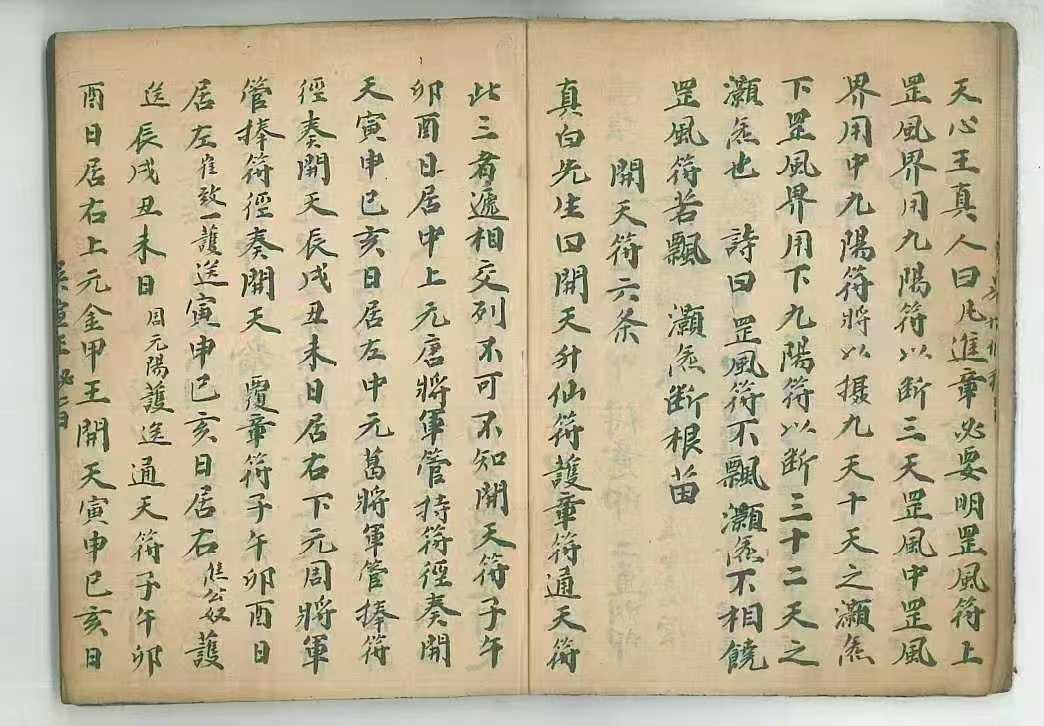 天心王真人曰凡進章必要明罡風符上
罡風界用九陽符以断三天罡風中罡風
界用中九陽符將以摄九天十天之灝炁
下罡風界用下九陽符以断三十二天之
灝炁也 詩曰 罡風符不飄灝炁不相饒
罡風符若飄 灝炁断根苗
開天符六条
真白先生曰開天升仙符護章符通天符
此三者遞相交列不可不知開天符子午
卯酉日居中上元唐將軍管持符徑奏開
天寅申巳亥日居左中元葛將軍管捧符
徑奏開天辰戌丑未日居右下元周將軍
管捧符徑奏開天 覆章符子午卯酉日
居左崔致一護送寅申巳亥日居右焦公奴護
送辰戌丑未日 周元陽護送通天符子午卯
酉日居右上元金甲王開天寅申巳亥日